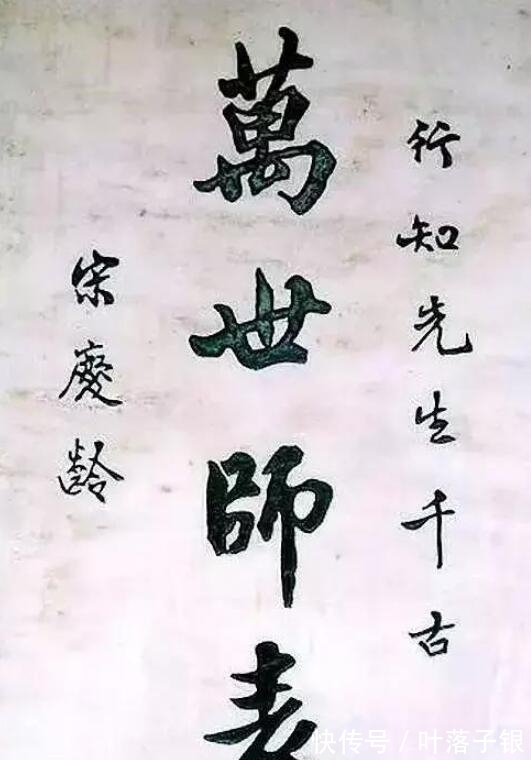 行知先生千古
萬世師表
宋慶齡
快传号/叶落子银